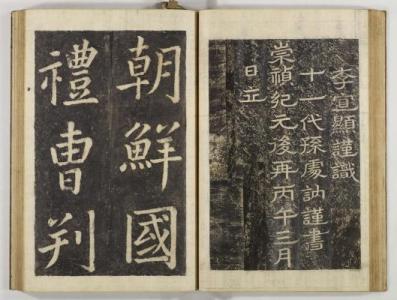 李宜顯謹識
十一代孫處訥謹書
崇禎紀元後再丙午三月
日立
朝鮮國
禮曺判